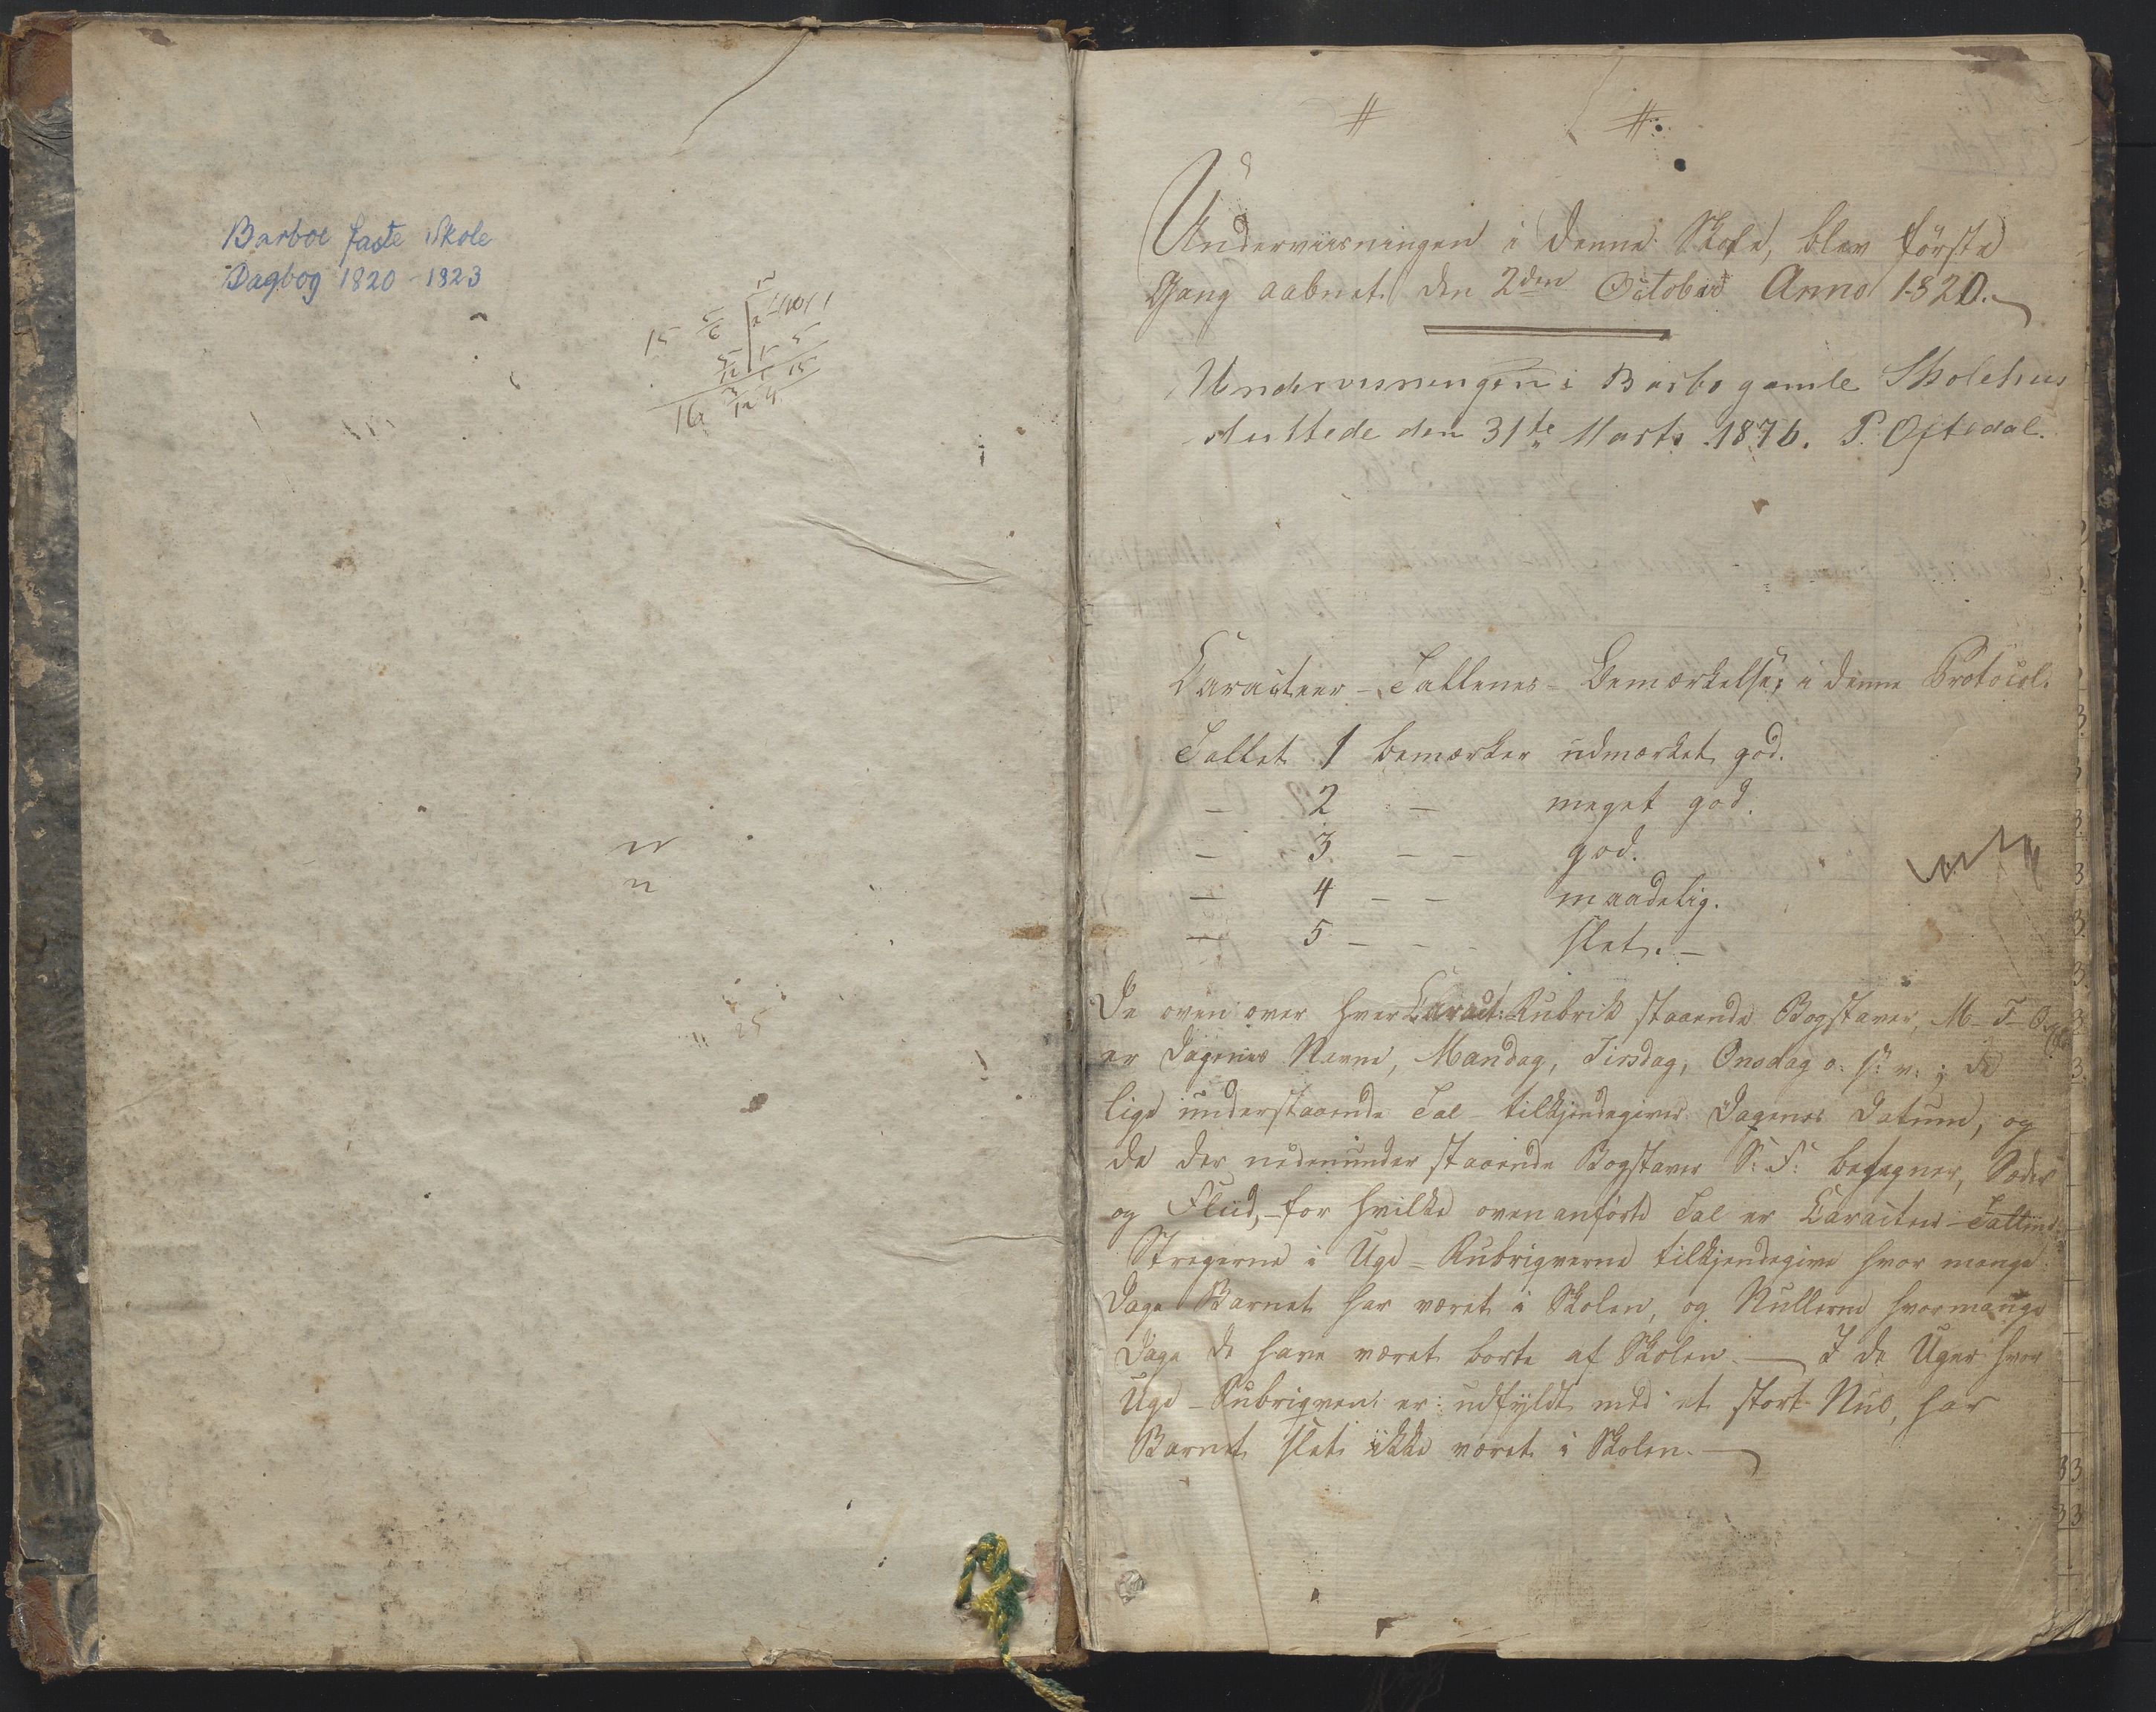 Barboe faste Skole
Dagbog 1820-1823
15 5/6
25
Underviisningen i denne Skole, blev første
Gang aabnet den 2den October Anno 1820.
Undervisningen i Barbo gamle Skolehus
sluttede den 31te Marts 1876. P. Oftedal.
Caracteer-Tallenes-Bemærkelse i denne Protocol.
Tallet 1 bemærker udmærket god.
- 2 - meget god.
- 3 - - god.
- 4 - - maadelig.
- 5 - - - slet.-
De oven over hver Caract: Rubrik staaende Bogstaver, M- T- O
er Dagenes Navne, Mandag, Tirsdag, Onsdag o: s: v: ; de
lige understaaende Tal tilkjendegiver Dagenes Datum, og
de der nedenunder staaende Bogstaver S: F: betegner, Sæder
og Fliid, - for hvilke ovenanførte Tal er Caracteer-Tallene.
Stregerne i Uge-Rubriqverne tilkjendegive hvor mange
Dage Barnet har været i Skolen, og Nullerne hvormange
Dage de have været borte af Skolen. — I de Uger hvor
Uge-Rubriqven er udfyldt med et stort Nul, har
Barnet slet ikke været i Skolen. —